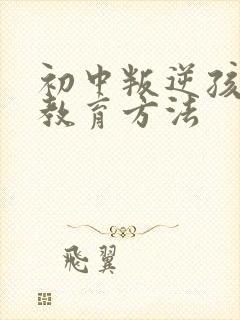 初中叛逆孩
教育方法
飛翼